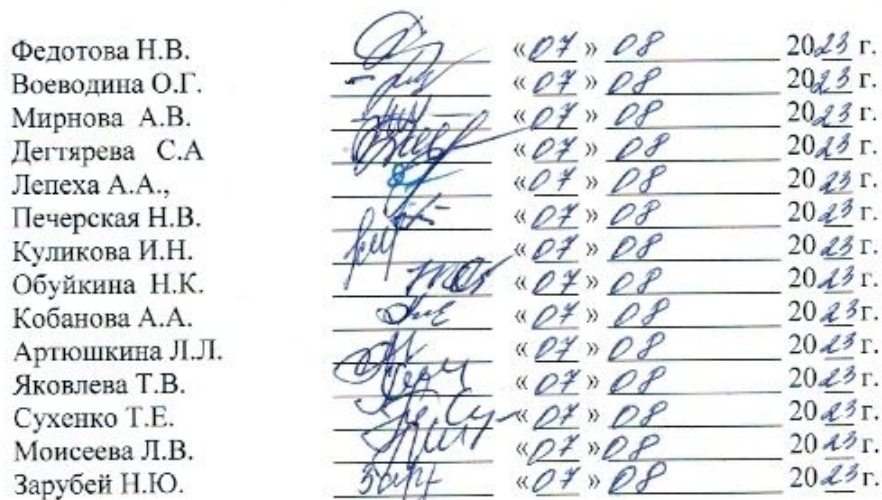 Федотова Н.В. «07» 08 2023 г.
Воеводина О.Г. «07» 08 2023 г.
Мирнова А.В. «07» 08 2023 г.
Дегтярева С.А «07» 08 2023 г.
Лепеха А.А., «07» 08 2023 г.
Печерская Н.В. «07» 08 2023 г.
Куликова И.Н. «07» 08 2023 г.
Обуйкина Н.К. «07» 08 2023 г.
Кобанова А.А. «07» 08 2023 г.
Артюшкина Л.Л. «07» 08 2023 г.
Яковлева Т.В. «07» 08 2023 г.
Сухенко Т.Е. «07» 08 2023 г.
Моисеева Л.В. «07» 08 2023 г.
Зарубей Н.Ю. «07» 08 2023 г.